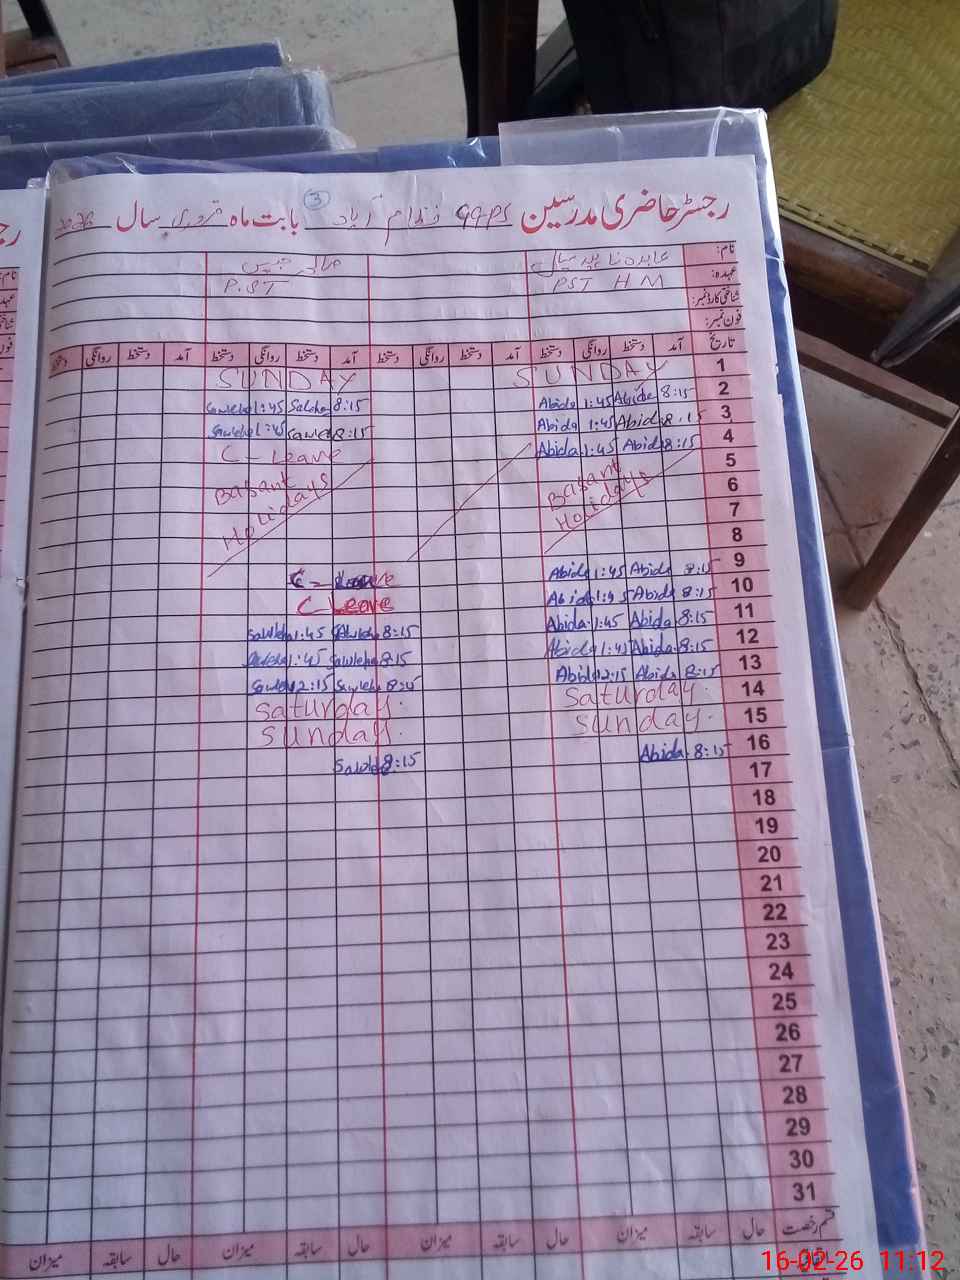 رجسٹر حاضری مدرسین GGPS آباد بابت ماہ فروری سال 2026
3
نام:
عہدہ: PST HM P.ST
شناختی کارڈ نمبر:
فون نمبر:
تاریخ آمد دستخط روانگی دستخط آمد دستخط روانگی دستخط آمد دستخط روانگی دستخط آمد دستخط روانگی دستخط
1 SUNDAY SUNDAY
2 8:15 Abida 1:45 Abida 8:15 Saleha 1:45 Saweha
3 8:15 Abida 1:45 Abida 8:15 1:45
4 8:15 Abida 1:45 Abida C-Leave
5 Basant Holidays Basant Holidays
6
7
8
9 8:15 Abida 1:45 Abida C-Leave
10 8:15 Abida 1:45 Abida C Leave
11 8:15 Abida 1:45 Abida 8:15 1:45 Sawleha
12 8:15 Abida 1:45 Abida 8:15 Sawleha 1:45
13 8:15 Abida 12:15 Abida 8:15 Sawleha 12:15
14 Saturday. Saturday.
15 Sunday. Sunday.
16 8:15 Abida 8:15
17
18
19
20
21
22
23
24
25
26
27
28
29
30
31
قسم رخصت حال سابقہ میزان حال سابقہ میزان حال سابقہ میزان حال سابقہ میزان
16-02-26 11:12